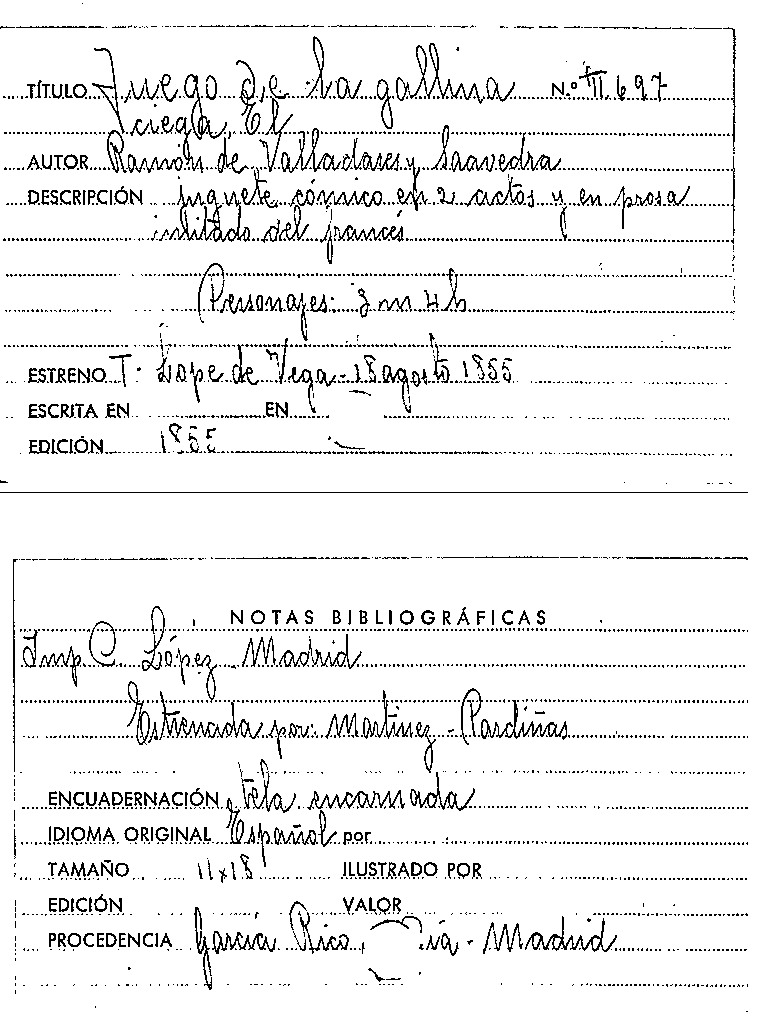 TÍTULO Juego de la gallina N.º III.697
ciega, El
AUTOR Ramón de Valladares y Saavedra
DESCRIPCIÓN juguete cómico en 2 actos y en prosa
imitado del francés
Personajes: 3 m 4 h
ESTRENO T. Lope de Vega - 18 agosto 1855
ESCRITA EN EN
EDICIÓN 1855
NOTAS BIBLIOGRÁFICAS
Imp. C. López - Madrid
Estrenada por: Martinez - Pardiñas
ENCUADERNACIÓN tela encarnada
IDIOMA ORIGINAL Español por
TAMAÑO 11x18 ILUSTRADO POR
EDICIÓN VALOR
PROCEDENCIA García Rico - Madrid